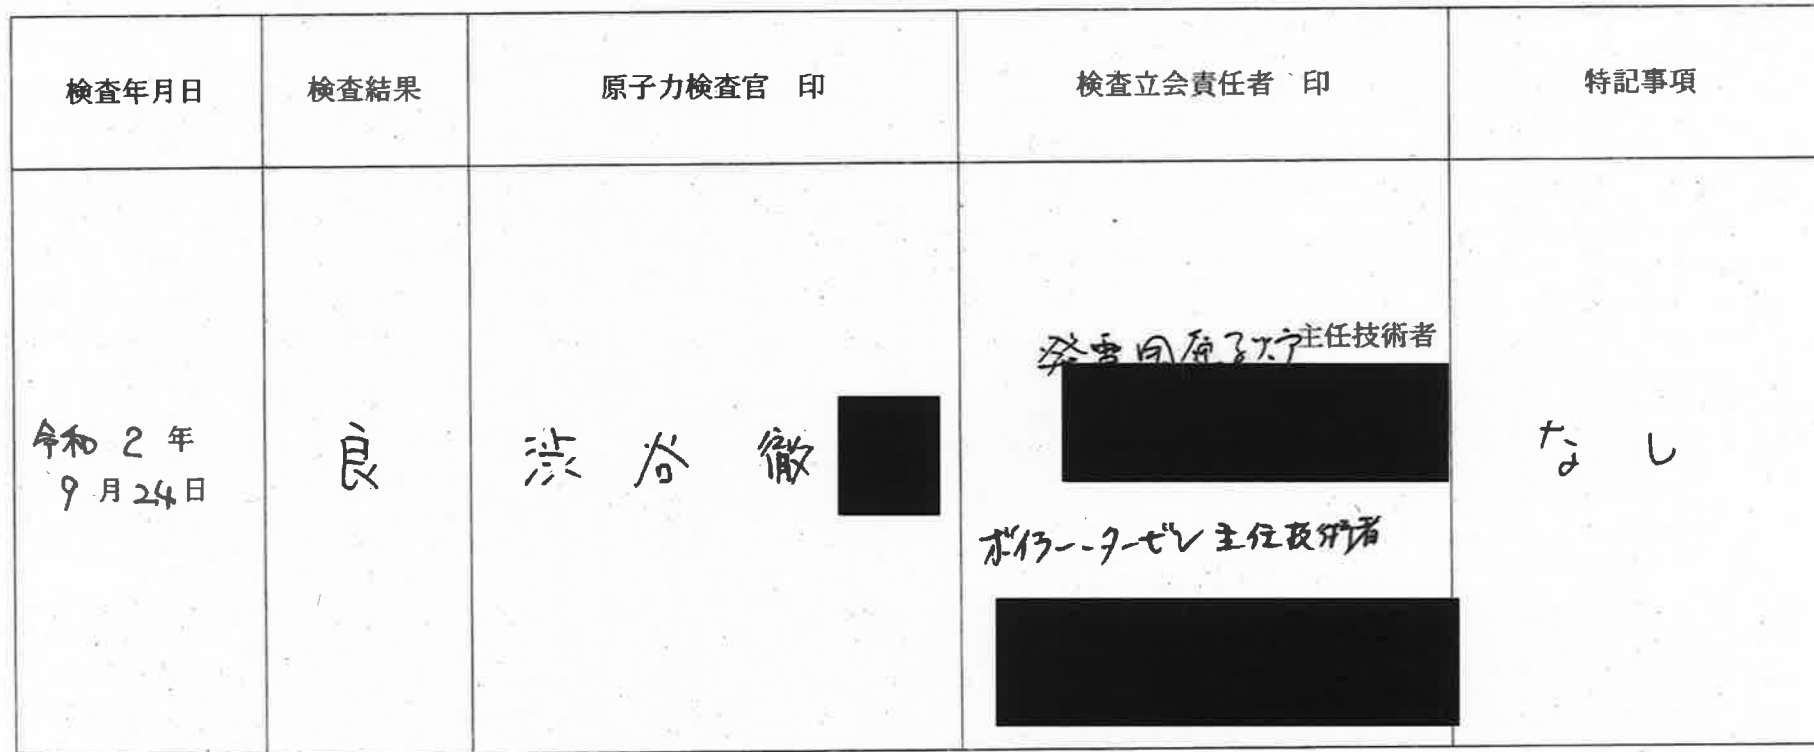 検査年月日
検査結果
原子力検査官 印
検査立会責任者 印
特記事項
令和 2 年
9 月 24 日
良
渋 谷 徹
発電用原子炉主任技術者
ボイラー・タービン主任技術者
なし